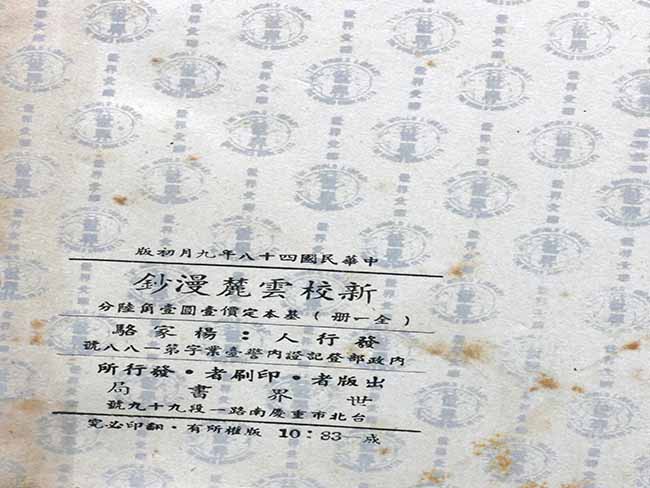 中華民國四十八年九月初版
新校雲麓漫鈔
（全一册）基本定價壹圓壹角陸分
發行人：楊家駱
內政部登記證內警臺業字第一八八號
出版者・印刷者・發行所
世界書局
台北市重慶南路一段九十九號
成—10:83 版權所有・翻印必究